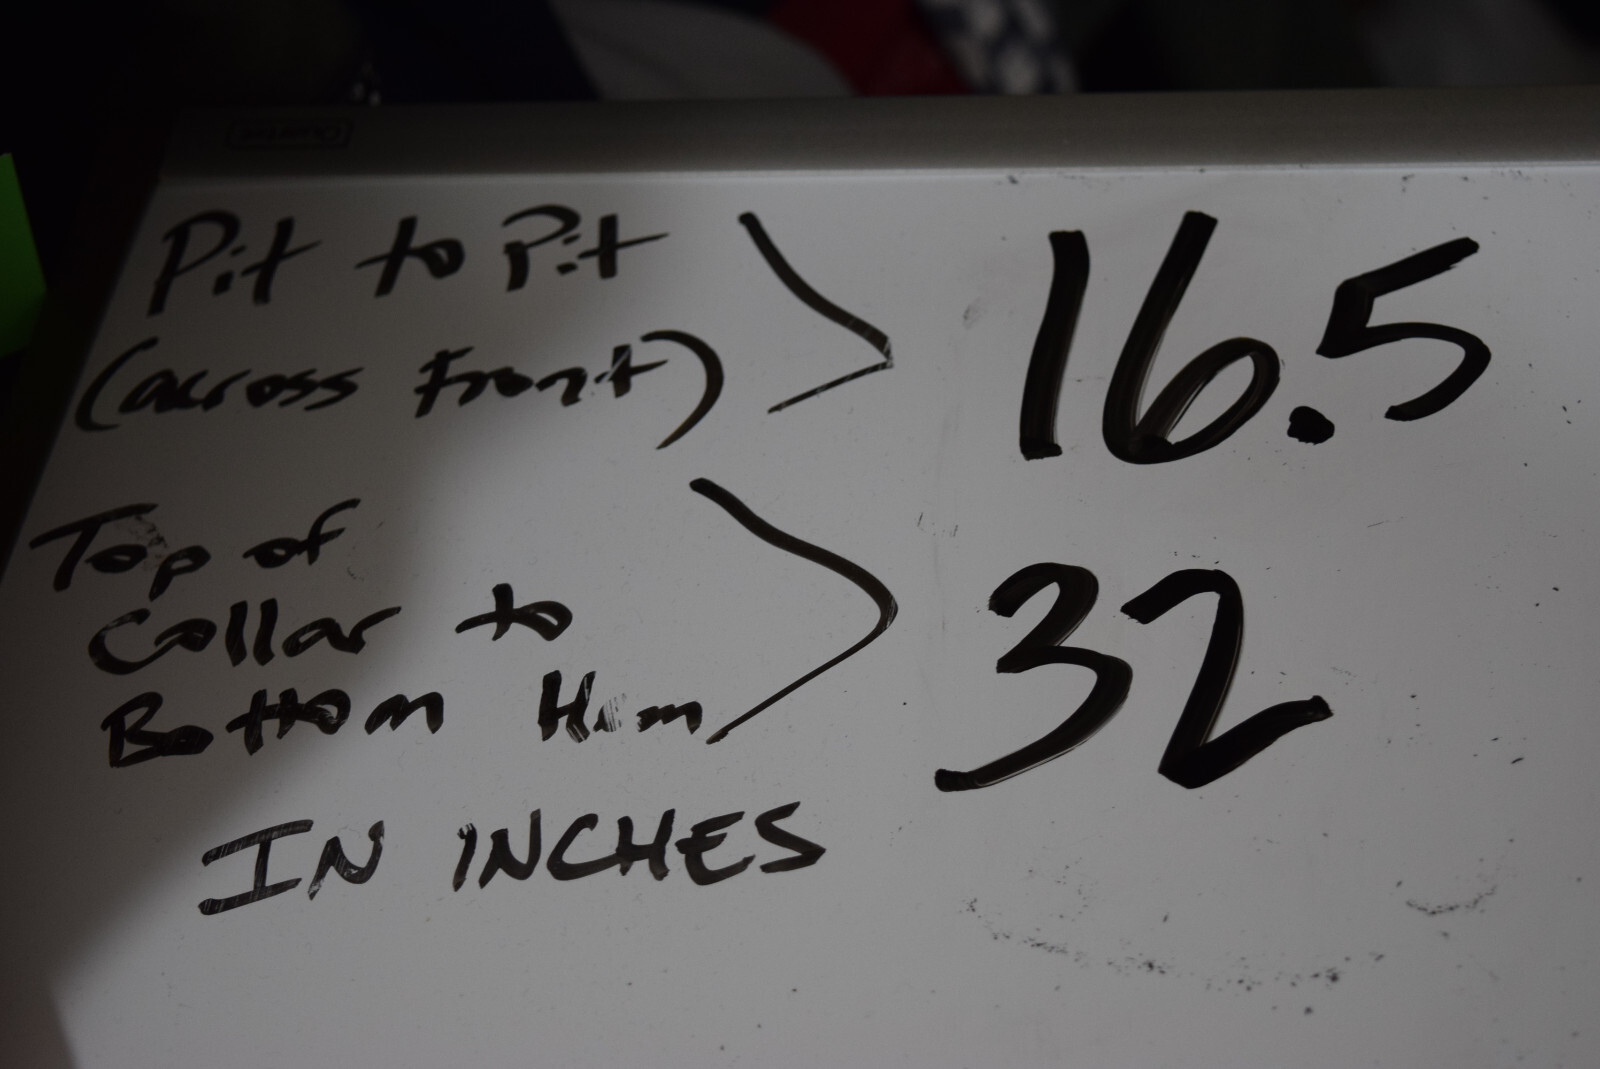 Pit to Pit
(across front)
16.5
Top of
Collar to
Bottom Hem
32
IN INCHES